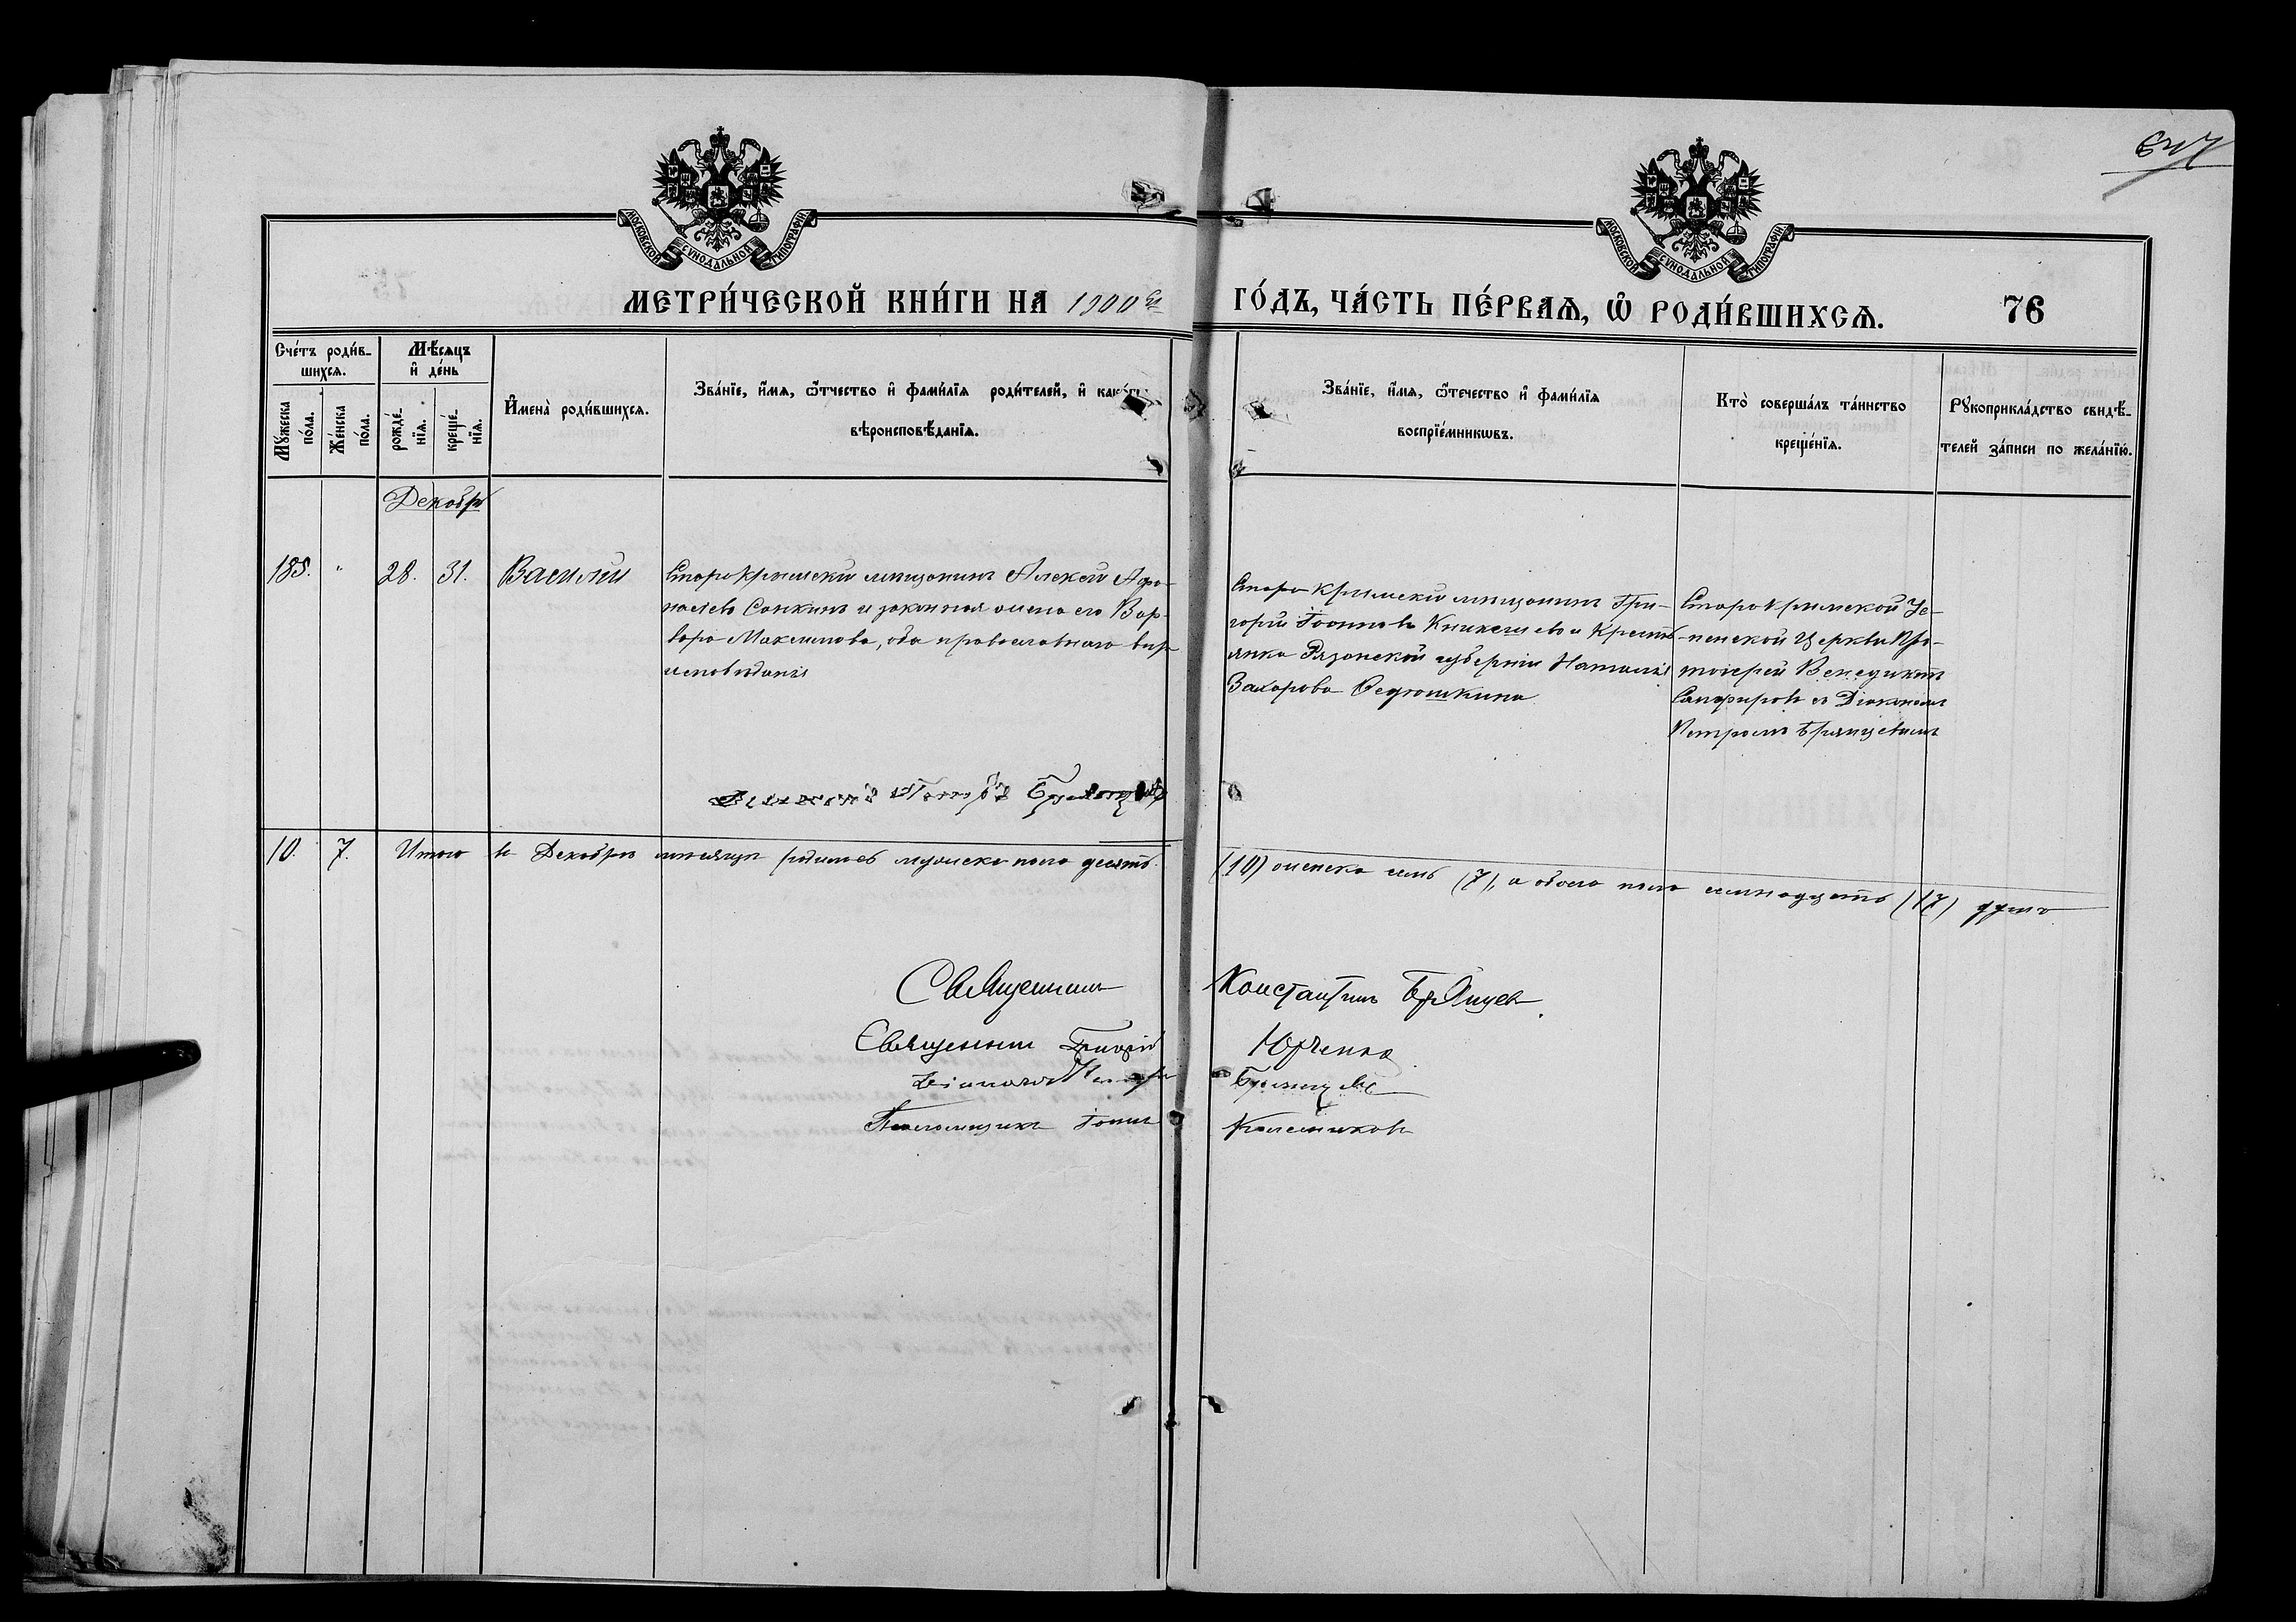 647
МОСКОВСКОЙ СѴНОДАЛЬНОЙ ТИПОГРАФІИ
МОСКОВСКОЙ СѴНОДАЛЬНОЙ ТИПОГРАФІИ
МЕТРИ́ЧЕСКОЙ КНИ́ГИ НА 1900 ый ГО́ДЪ, ЧА́СТЬ ПЕ́РВАѦ, Ѡ҆ РОДИ́ВШИХСѦ. 76
Сче́тъ роди́в-
шихсѧ.
Мѣ́сѧцъ
и҆ де́нь
Мꙋ́жеска
по́ла.
Же́нска
по́ла.
рожде́-
нїѧ.
креще́-
нїѧ.
И҆мена̀ роди́вшихсѧ.
Зва́нїе, и҆́мѧ, ѻ҆́тчество и҆ фами́лїѧ роди́телей, и҆ како́гѡ
вѣроисповѣ́данїѧ.
Зва́нїе, и҆́мѧ, ѻ҆́течество и҆ фами́лїѧ
воспрїе́мникѡвъ.
Кто̀ соверша́лъ та́инство
креще́нїѧ.
Рꙋкоприкла́дство свидѣ́-
телей за́писи по жела́нїю.
Декабрь
185. " 28. 31. Василій
Старокрымскій мѣщанинъ Алексѣй Афа-
насіевъ Санкинъ и законная жена его Вар-
вара Максимова, оба православнаго вѣро-
исповѣданія
Старокрымскій мѣщанинъ Гри-
горій Іоанновъ и Кресть-
янка Рязанской губерніи Наталія
Захарова Федюшкина
Старокрымской Ус-
пенской Церкви Про-
тоіерей Венедиктъ
Сапфировъ съ Діакономъ
Петромъ Брянцевымъ
Діаконъ Петръ Брянцевъ
10. 7. Итого въ Декабрѣ мѣсяцѣ родилось мужеска пола десять (10) женска семь (7), а обоего пола семнадцать (17) душъ
Священникъ Константинъ Брянцевъ.
Священникъ Юрченко
Діаконъ Петръ Брянцевъ
Псаломщикъ Іоаннъ Колесниковъ